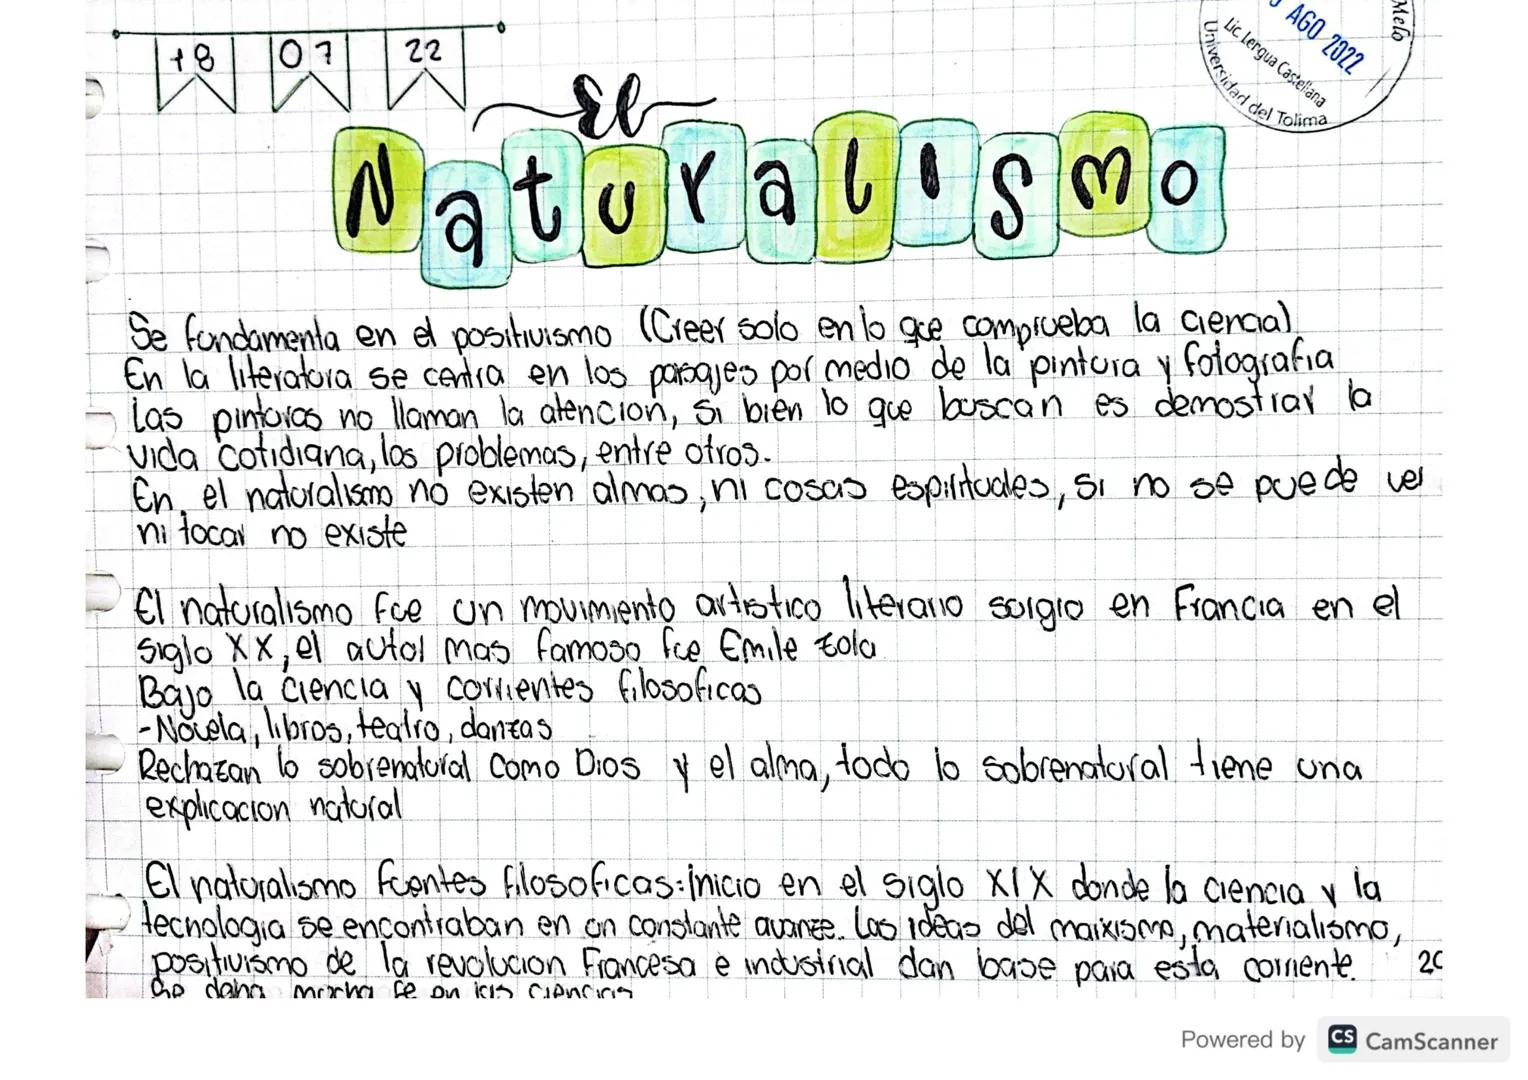 18 07 22
AGO 2022
Melo
Lic Lengua Castellana
Universidad del Tolima
El
Naturalismo
Se fundamenta en el positivismo (Creer solo en lo que comprueba la ciencia)
En la literatura se centra en los paisajes por medio de la pintura y fotografia
Las pinturas no llaman la atencion, si bien lo que buscan es demostrar la
vida cotidiana, los problemas, entre otros.
En el naturalismo no existen almas, ni cosas espirituales, si no se puede ver
ni tocar no existe
El naturalismo fue un movimiento artistico literario surgio en Francia en el
siglo XX, el autor mas famoso fue Emile Zola
Bajo la ciencia y corrientes filosoficas
-Novela, libros, teatro, danzas
Rechazan lo sobrenatural como Dios y el alma, todo lo sobrenatural tiene una
explicacion natural
El naturalismo fuentes filosoficas: inicio en el siglo XIX donde la ciencia y la
tecnologia se encontraban en un constante avance. Las ideas del marxismo, materialismo,
positivismo de la revolucion Francesa e industrial dan base para esta corriente.
Se daba mucha fe en las ciencias
Powered by CS CamScanner